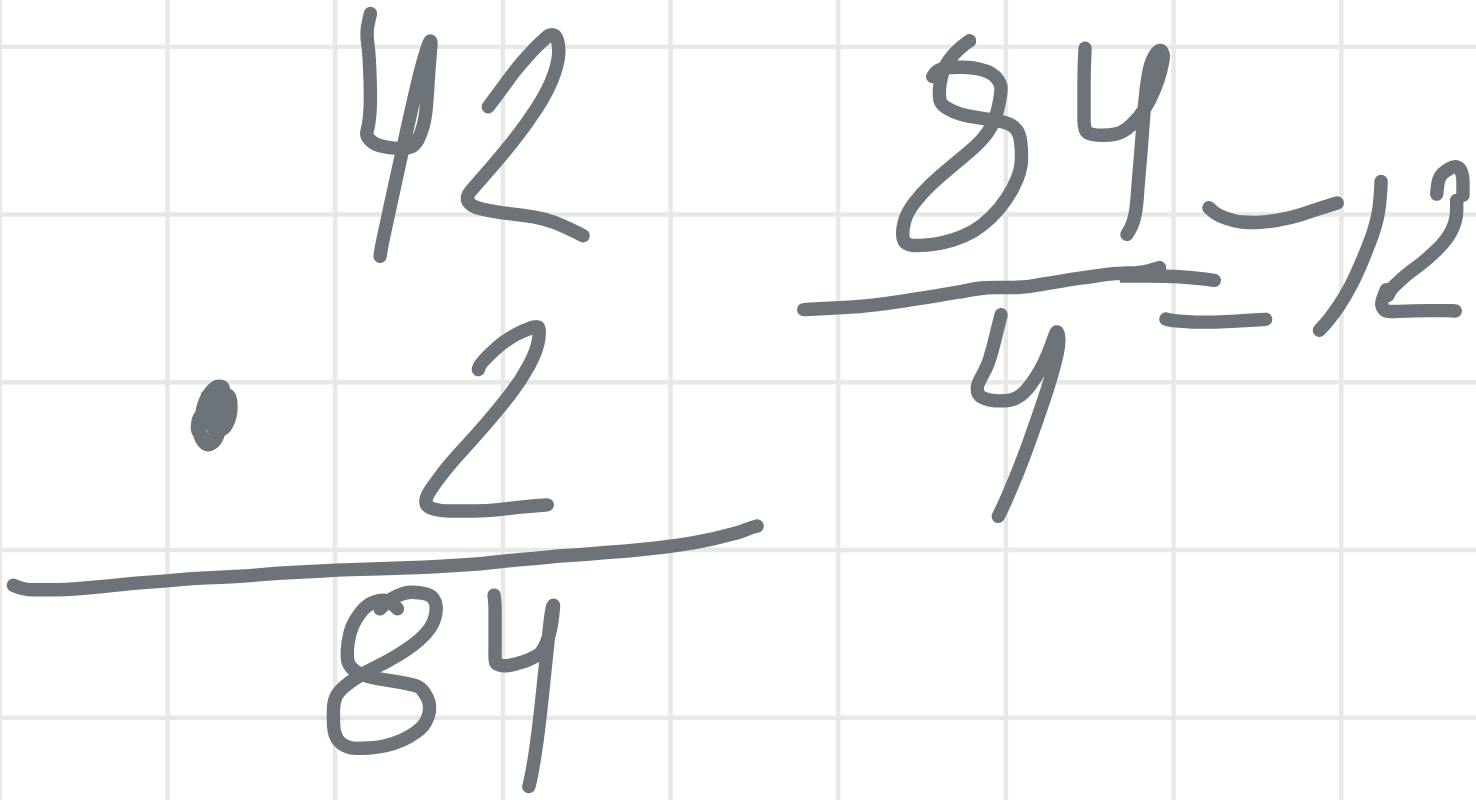 42
· 2
84
84
4
= 12